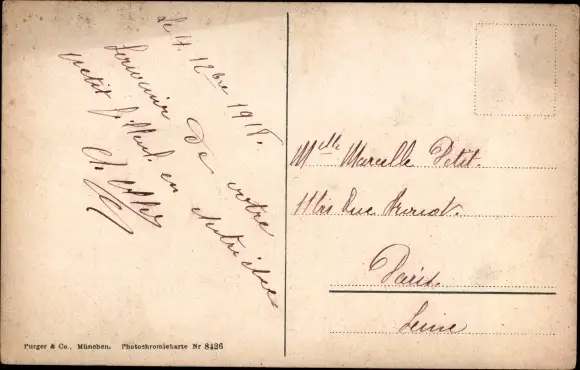 Le 4. 12bre 1918.
Souvenir de votre
petit filleul. en Autriche
Ch.
Melle Marcelle Petit.
11 bis Rue
Paris.
Seine
Purger & Co., München. Photochromiekarte Nr 8426